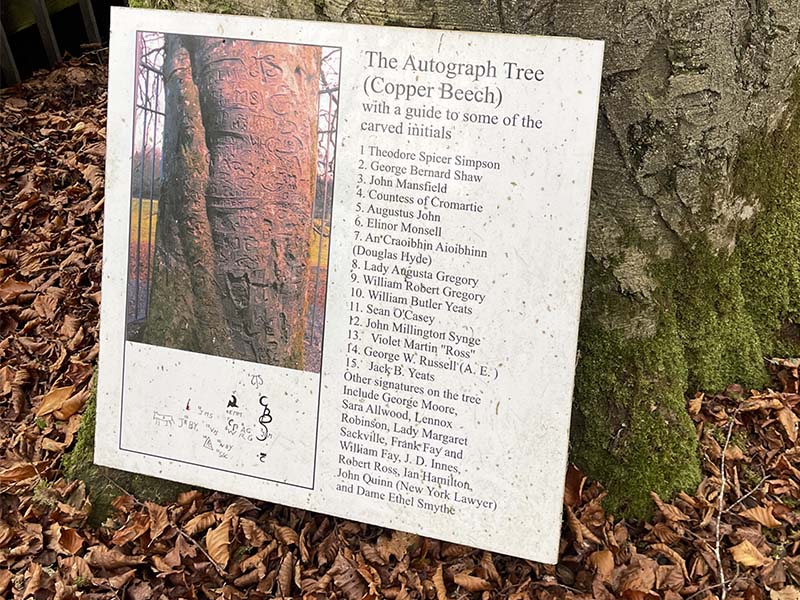 The Autograph Tree
(Copper Beech)
with a guide to some of the
carved initials
1 Theodore Spicer Simpson
2. George Bernard Shaw
3. John Mansfield
4. Countess of Cromartie
5. Augustus John
6. Elinor Monsell
7. An Craoibhin Aioibhinn
(Douglas Hyde)
8. Lady Augusta Gregory
9. William Robert Gregory
10. William Butler Yeats
11. Sean O'Casey
12. John Millington Synge
13. Violet Martin "Ross"
14. George W. Russell (A. E. )
15. Jack B. Yeats
Other signatures on the tree
Include George Moore,
Sara Allwood, Lennox
Robinson, Lady Margaret
Sackville, Frank Fay and
William Fay, J. D. Innes,
Robert Ross, Ian Hamilton,
John Quinn (New York Lawyer)
and Dame Ethel Smythe